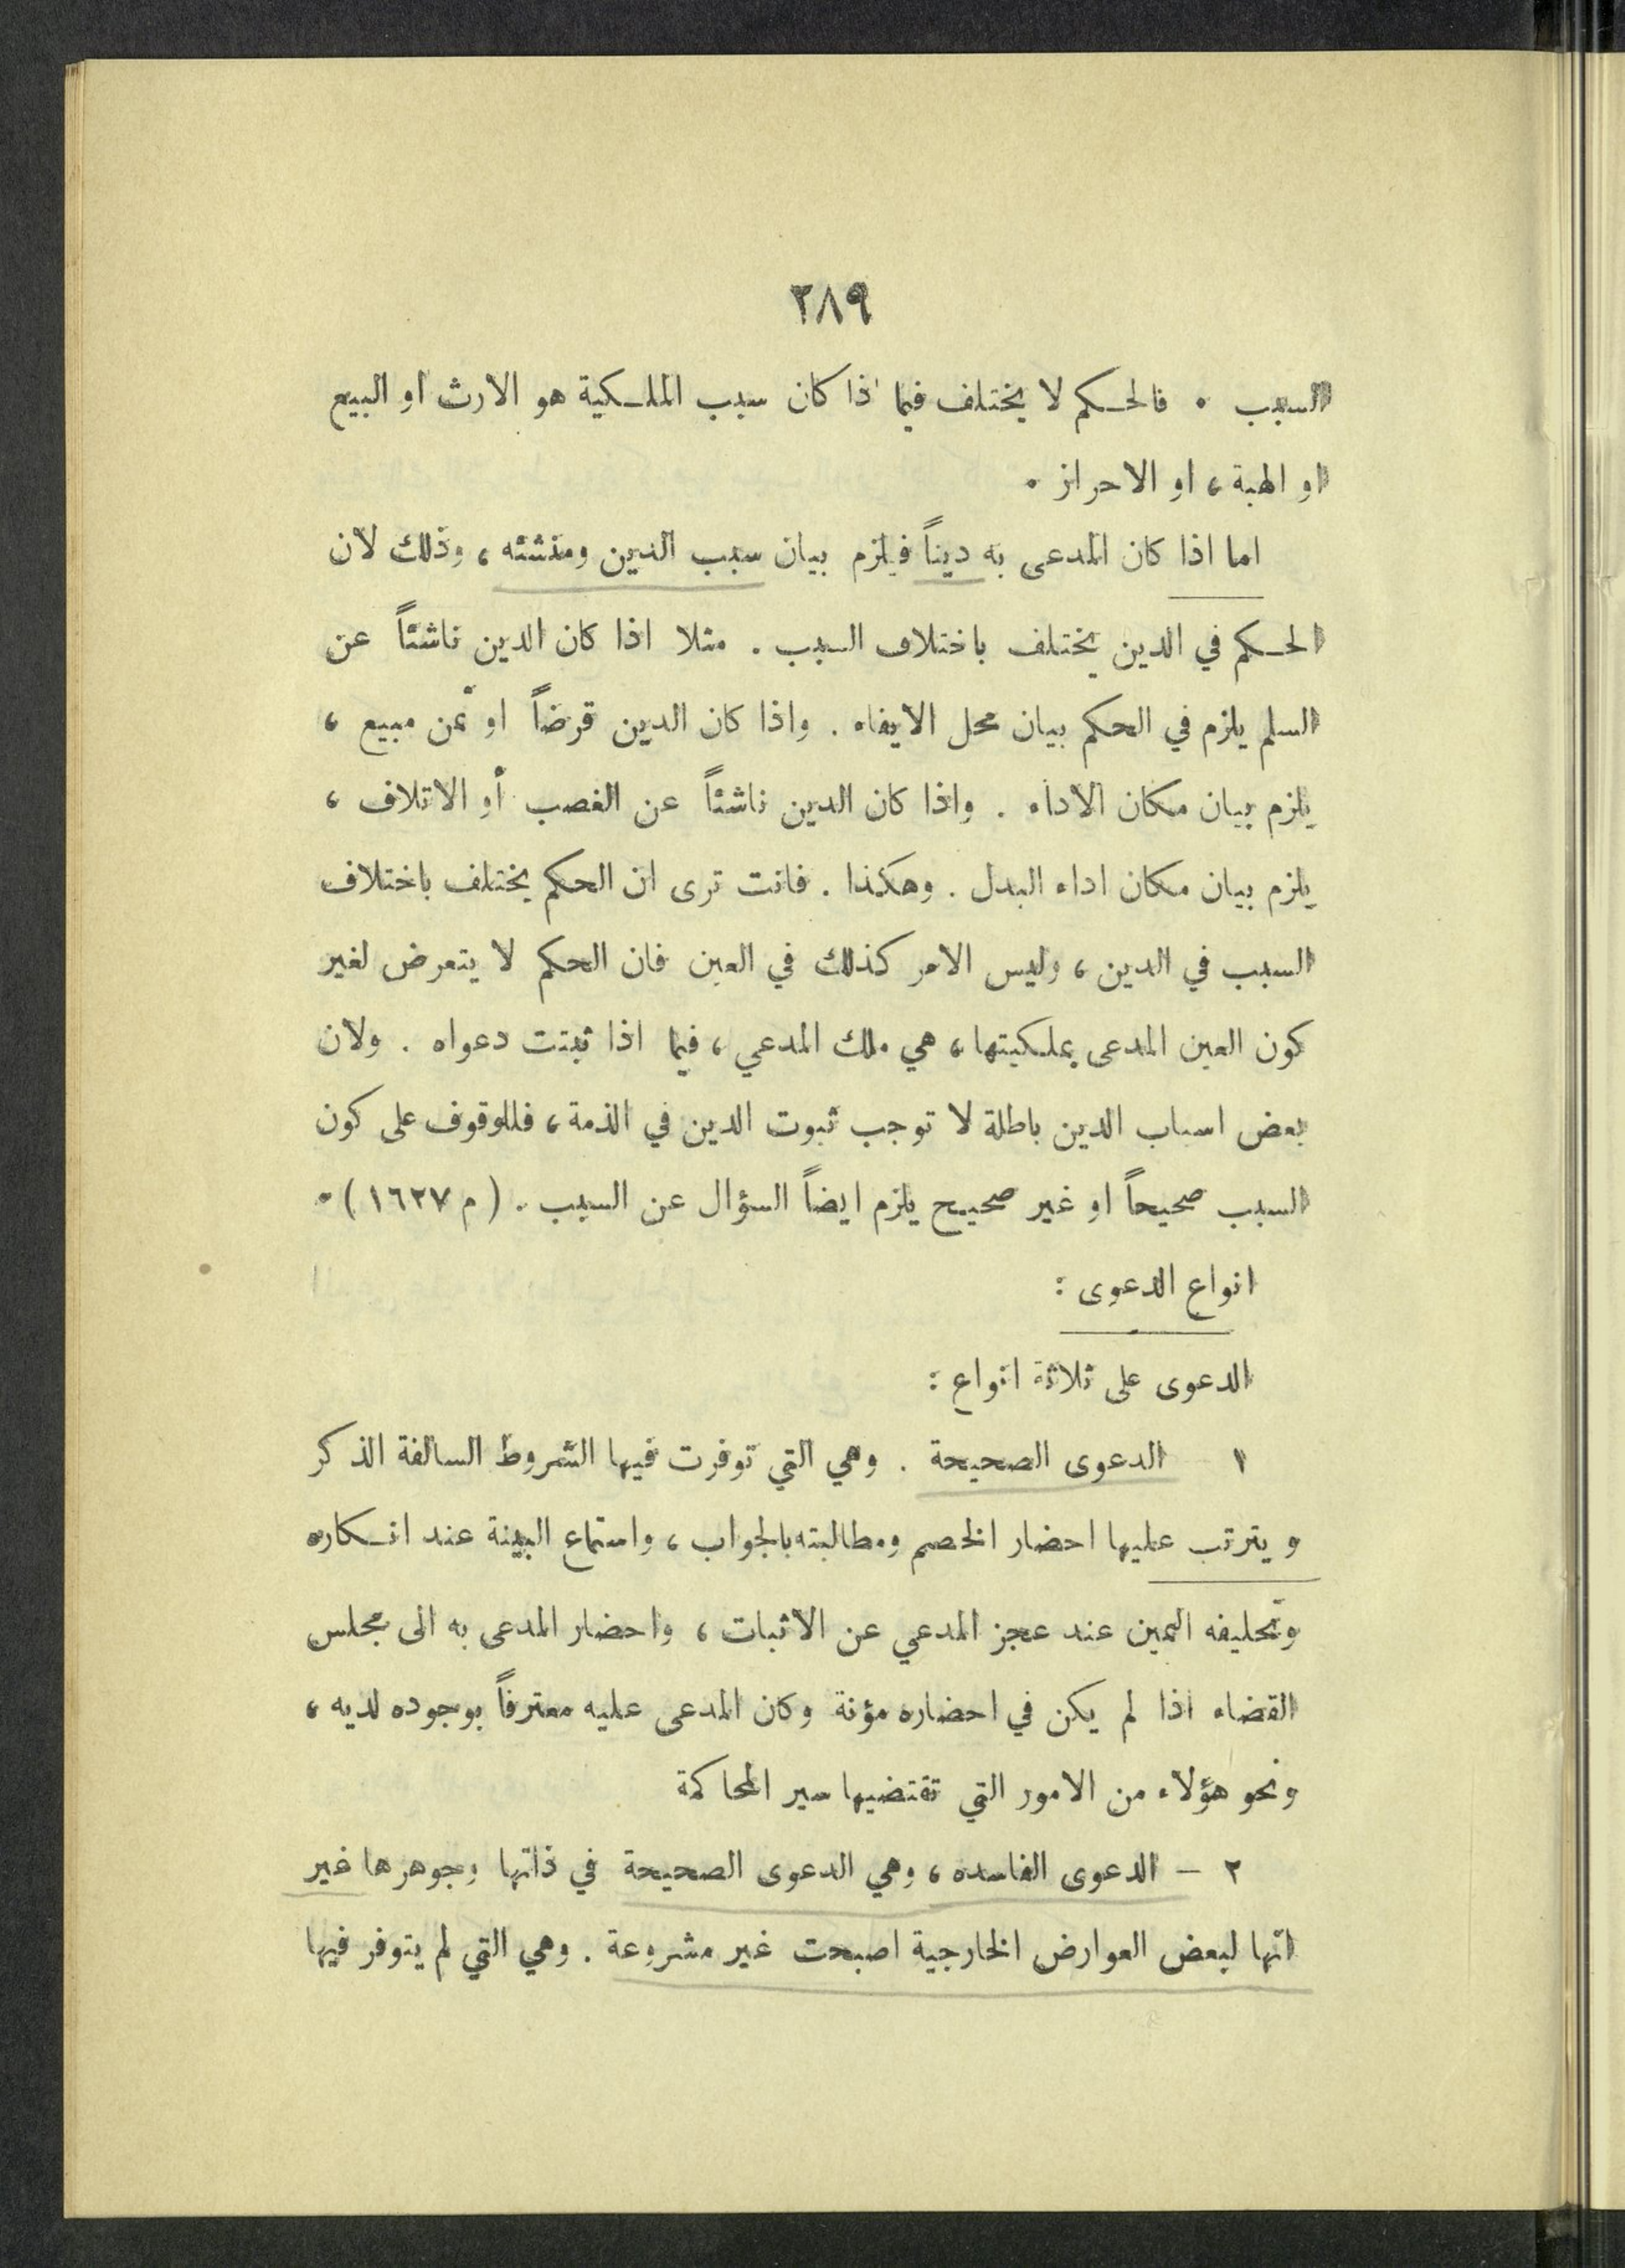 ٢٨٩
السبب . فالحكم لا يختلف فيما اذا كان سبب الملكية هو الارث او البيع
او الهبة ، او الاحراز .
اما اذا كان المدعى به ديناً فيلزم بيان سبب الدين ومنشئه ، وذلك لان
الحكم في الدين يختلف باختلاف السبب . مثلا اذا كان الدين ناشئاً عن
السلم يلزم في الحكم بيان محل الايفاء . واذا كان الدين قرضاً او ثمن مبيع ،
يلزم بيان مكان الاداء . واذا كان الدين ناشئاً عن الغصب أو الاتلاف ،
يلزم بيان مكان اداء البدل . وهكذا . فانت ترى ان الحكم يختلف باختلاف
السبب في الدين ، وليس الامر كذلك في العين فان الحكم لا يتعرض لغير
كون العين المدعى بملكيتها ، هي ملك المدعي ، فيما اذا ثبتت دعواه . ولان
بعض اسباب الدين باطلة لا توجب ثبوت الدين في الذمة ، فللوقوف على كون
السبب صحيحاً او غير صحيح يلزم ايضاً السؤال عن السبب . ( م ١٦٢٧ ) .
انواع الدعوى :
الدعوى على ثلاثة انواع :
١ الدعوى الصحيحة . وهي التي توفرت فيها الشروط السالفة الذكر
ويترتب عليها احضار الخصم ومطالبته بالجواب ، واستماع البينة عند انكاره
وتحليفه اليمين عند عجز المدعي عن الاثبات ، واحضار المدعى به الى مجلس
القضاء اذا لم يكن في احضاره مؤنة وكان المدعى عليه معترفاً بوجوده لديه ،
ونحو هؤلاء من الامور التي تقتضيها سير المحاكمة
٢ – الدعوى الفاسده ، وهي الدعوى الصحيحة في ذاتها وجوهرها غير
انها لبعض العوارض الخارجية اصبحت غير مشروعة . وهي التي لم يتوفر فيها